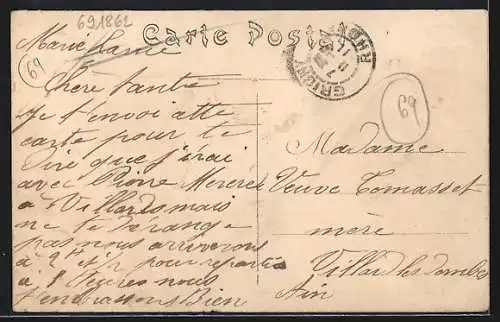 69.1862
Carte Postale
69
GRIGNY
RHONE
69
Marie
Chère tante
Je t'envoi cette
carte pour te
dire que j'irai
avec Pierre Mercredi
à Villards mais
ne te dérange
pas nous arriverons
à 9 H et 1/2 pour repartir
à 1 Heures nous
t'embrassons Bien
Madame
Veuve Tomasset
mère
Villard les Dombes
Ain